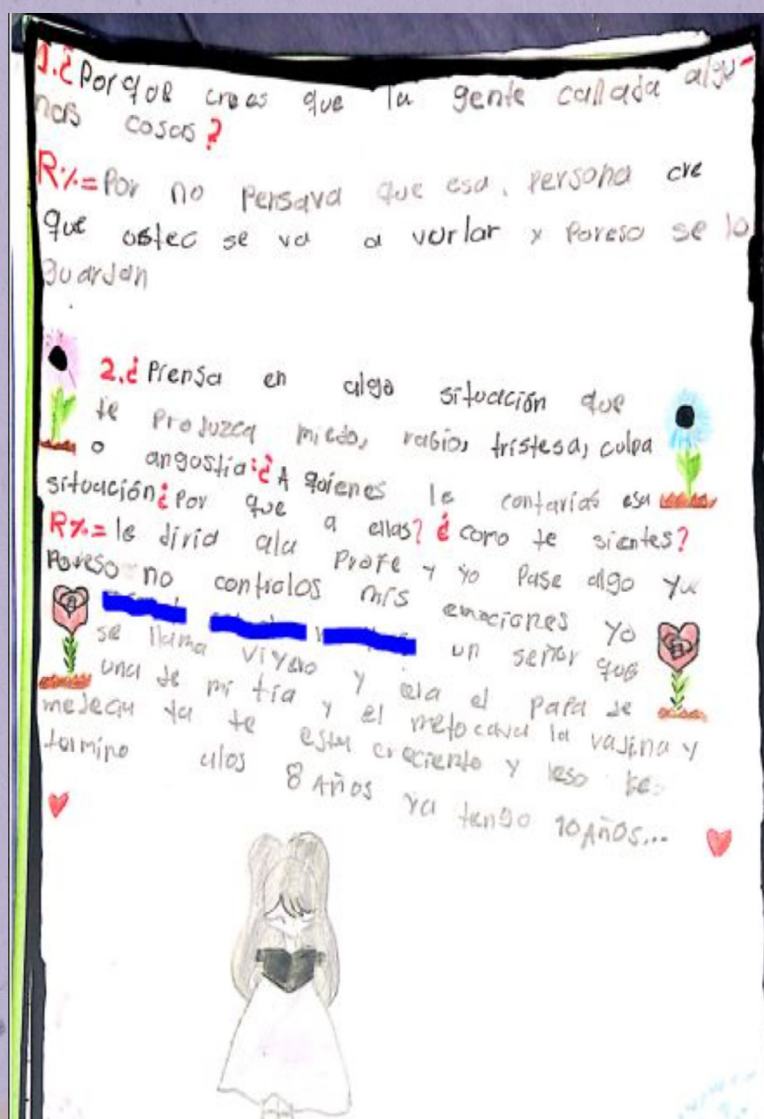 1.¿Por que crees que la gente callada algu-
nas cosas?
R%= Por no Pensava que esa. Persona cre
que ostec se va a vurlar y Poreso se lo
guardan
2.¿Piensa en algo situación que
te Produzca miedo, rabio, tristesa, culpa
o angostia:¿A quienes le contarias esa
situación¿Por que a ellas? ¿como te sientes?
R%= le diria ala Profe y yo Pase algo ya
Poreso no controlos mis emociones yo
un señor que
se llama y era el Papa de
una de mi tia y el metocava la vajina y
medecia ya te esta creciento y
termino alos 8 Años ya tengo 10 Años...